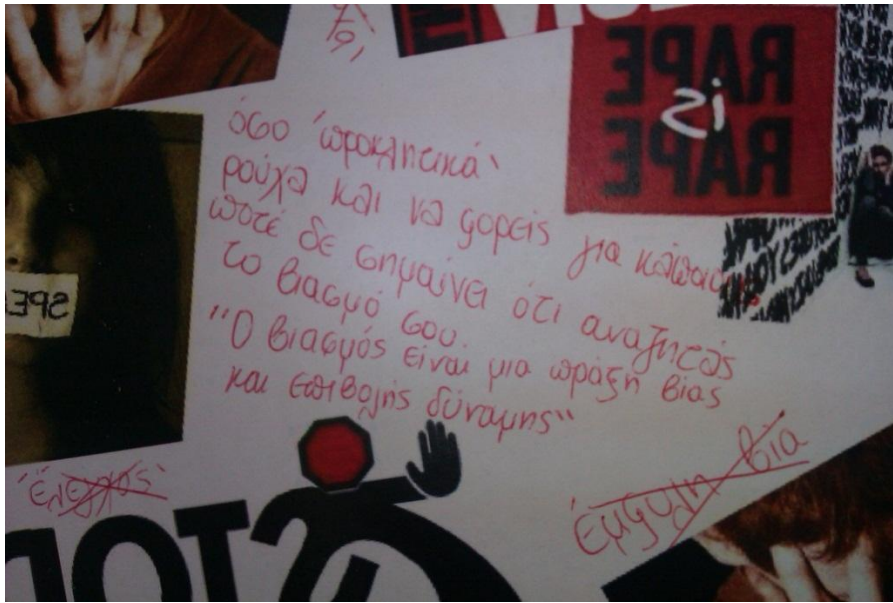 RAPE
is
RAPE
όσο 'προκλητικά'
ρούχα και να φορείς για κάποιους,
ποτέ δε σημαίνει ότι αναζητάς
το βιασμό σου.
"Ο βιασμός είναι μια πράξη βίας
και επιβολής δύναμης"
'έλεγχος'
έμφυλη βία
STOP